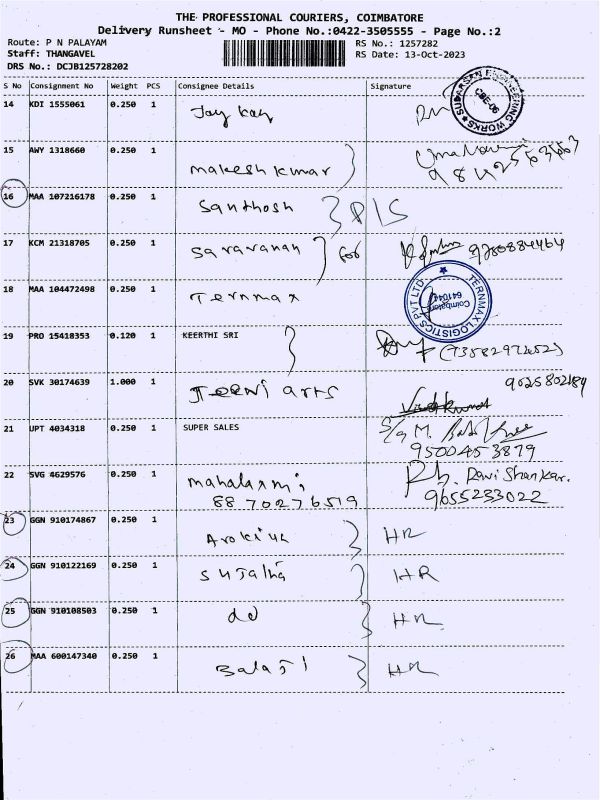 THE PROFESSIONAL COURIERS, COIMBATORE
Delivery Runsheet - MO - Phone No.:0422-3505555 - Page No.:2
Route: P N PALAYAM
RS No.: 1257282
Staff: THANGAVEL
RS Date: 13-Oct-2023
DRS No.: DCJB125728202
S No Consignment No Weight PCS Consignee Details Signature
14 KDI 1555061 0.250 1 Jay kay
SUDARSAN ENGINEERING WORKS
CBE-06
15 AWY 1318660 0.250 1 makesh kumar
16 MAA 107216178 0.250 1 Santhosh P/S
17 KCM 21318705 0.250 1 Saravanan for 9280884464
18 MAA 104472498 0.250 1 Ternmax
TERNMAX LOGISTICS PVT LTD.
Coimbatore
19 PRO 15418353 0.120 1 KEERTHI SRI (7358297452)
20 SVK 30174639 1.000 1 Jeeni arts
21 UPT 4034318 0.250 1 SUPER SALES
9500453879
22 SVG 4629576 0.250 1 mahalaxmi Ravi Shankar.
8870276519 9655233022
23 GGN 910174867 0.250 1 HR
24 GGN 910122169 0.250 1 HR
25 GGN 910108503 0.250 1 do HR
26 MAA 600147340 0.250 1 Balaji HR